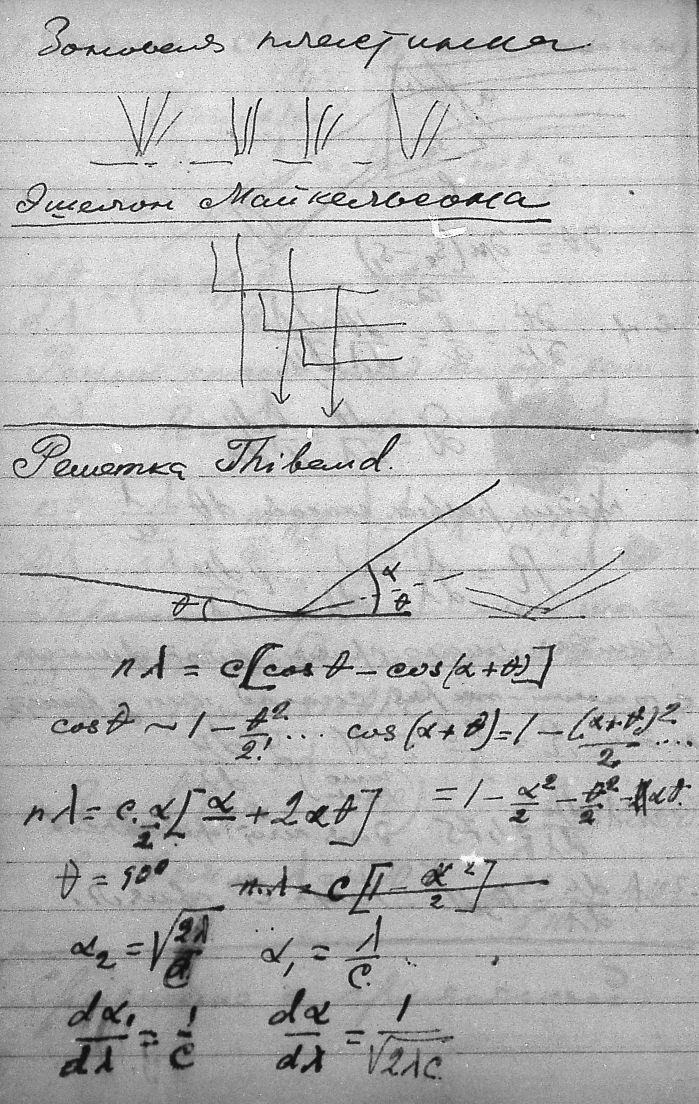 Зоновая пластинка
Эшелон Майкельсона
Решетка Thibeaud.
α
θ θ
nλ = c[cosθ − cos(α+θ)]
cosθ ~ 1 − θ²/2! ... cos(α+θ) = 1 − (α+θ)²/2! ....
nλ = c·α/2 [α + 2αθ] = 1 − α²/2 − θ²/2 − αθ.
θ = 90° nλ = c[1 − α²/2]
α₂ = √(2λ/c) α₁ = λ/c
dα₁/dλ = 1/c dα/dλ = 1/√(2λc)